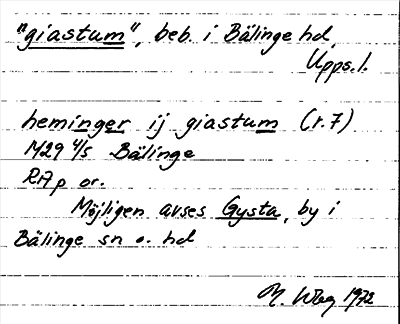 "giastum", beb. i Bälinge hd,
Upps. l.
heminger ij giastum (r. 7)
1429 4/5 Bälinge
RAp or.
Möjligen avses Gysta, by i
Bälinge sn o. hd
1972